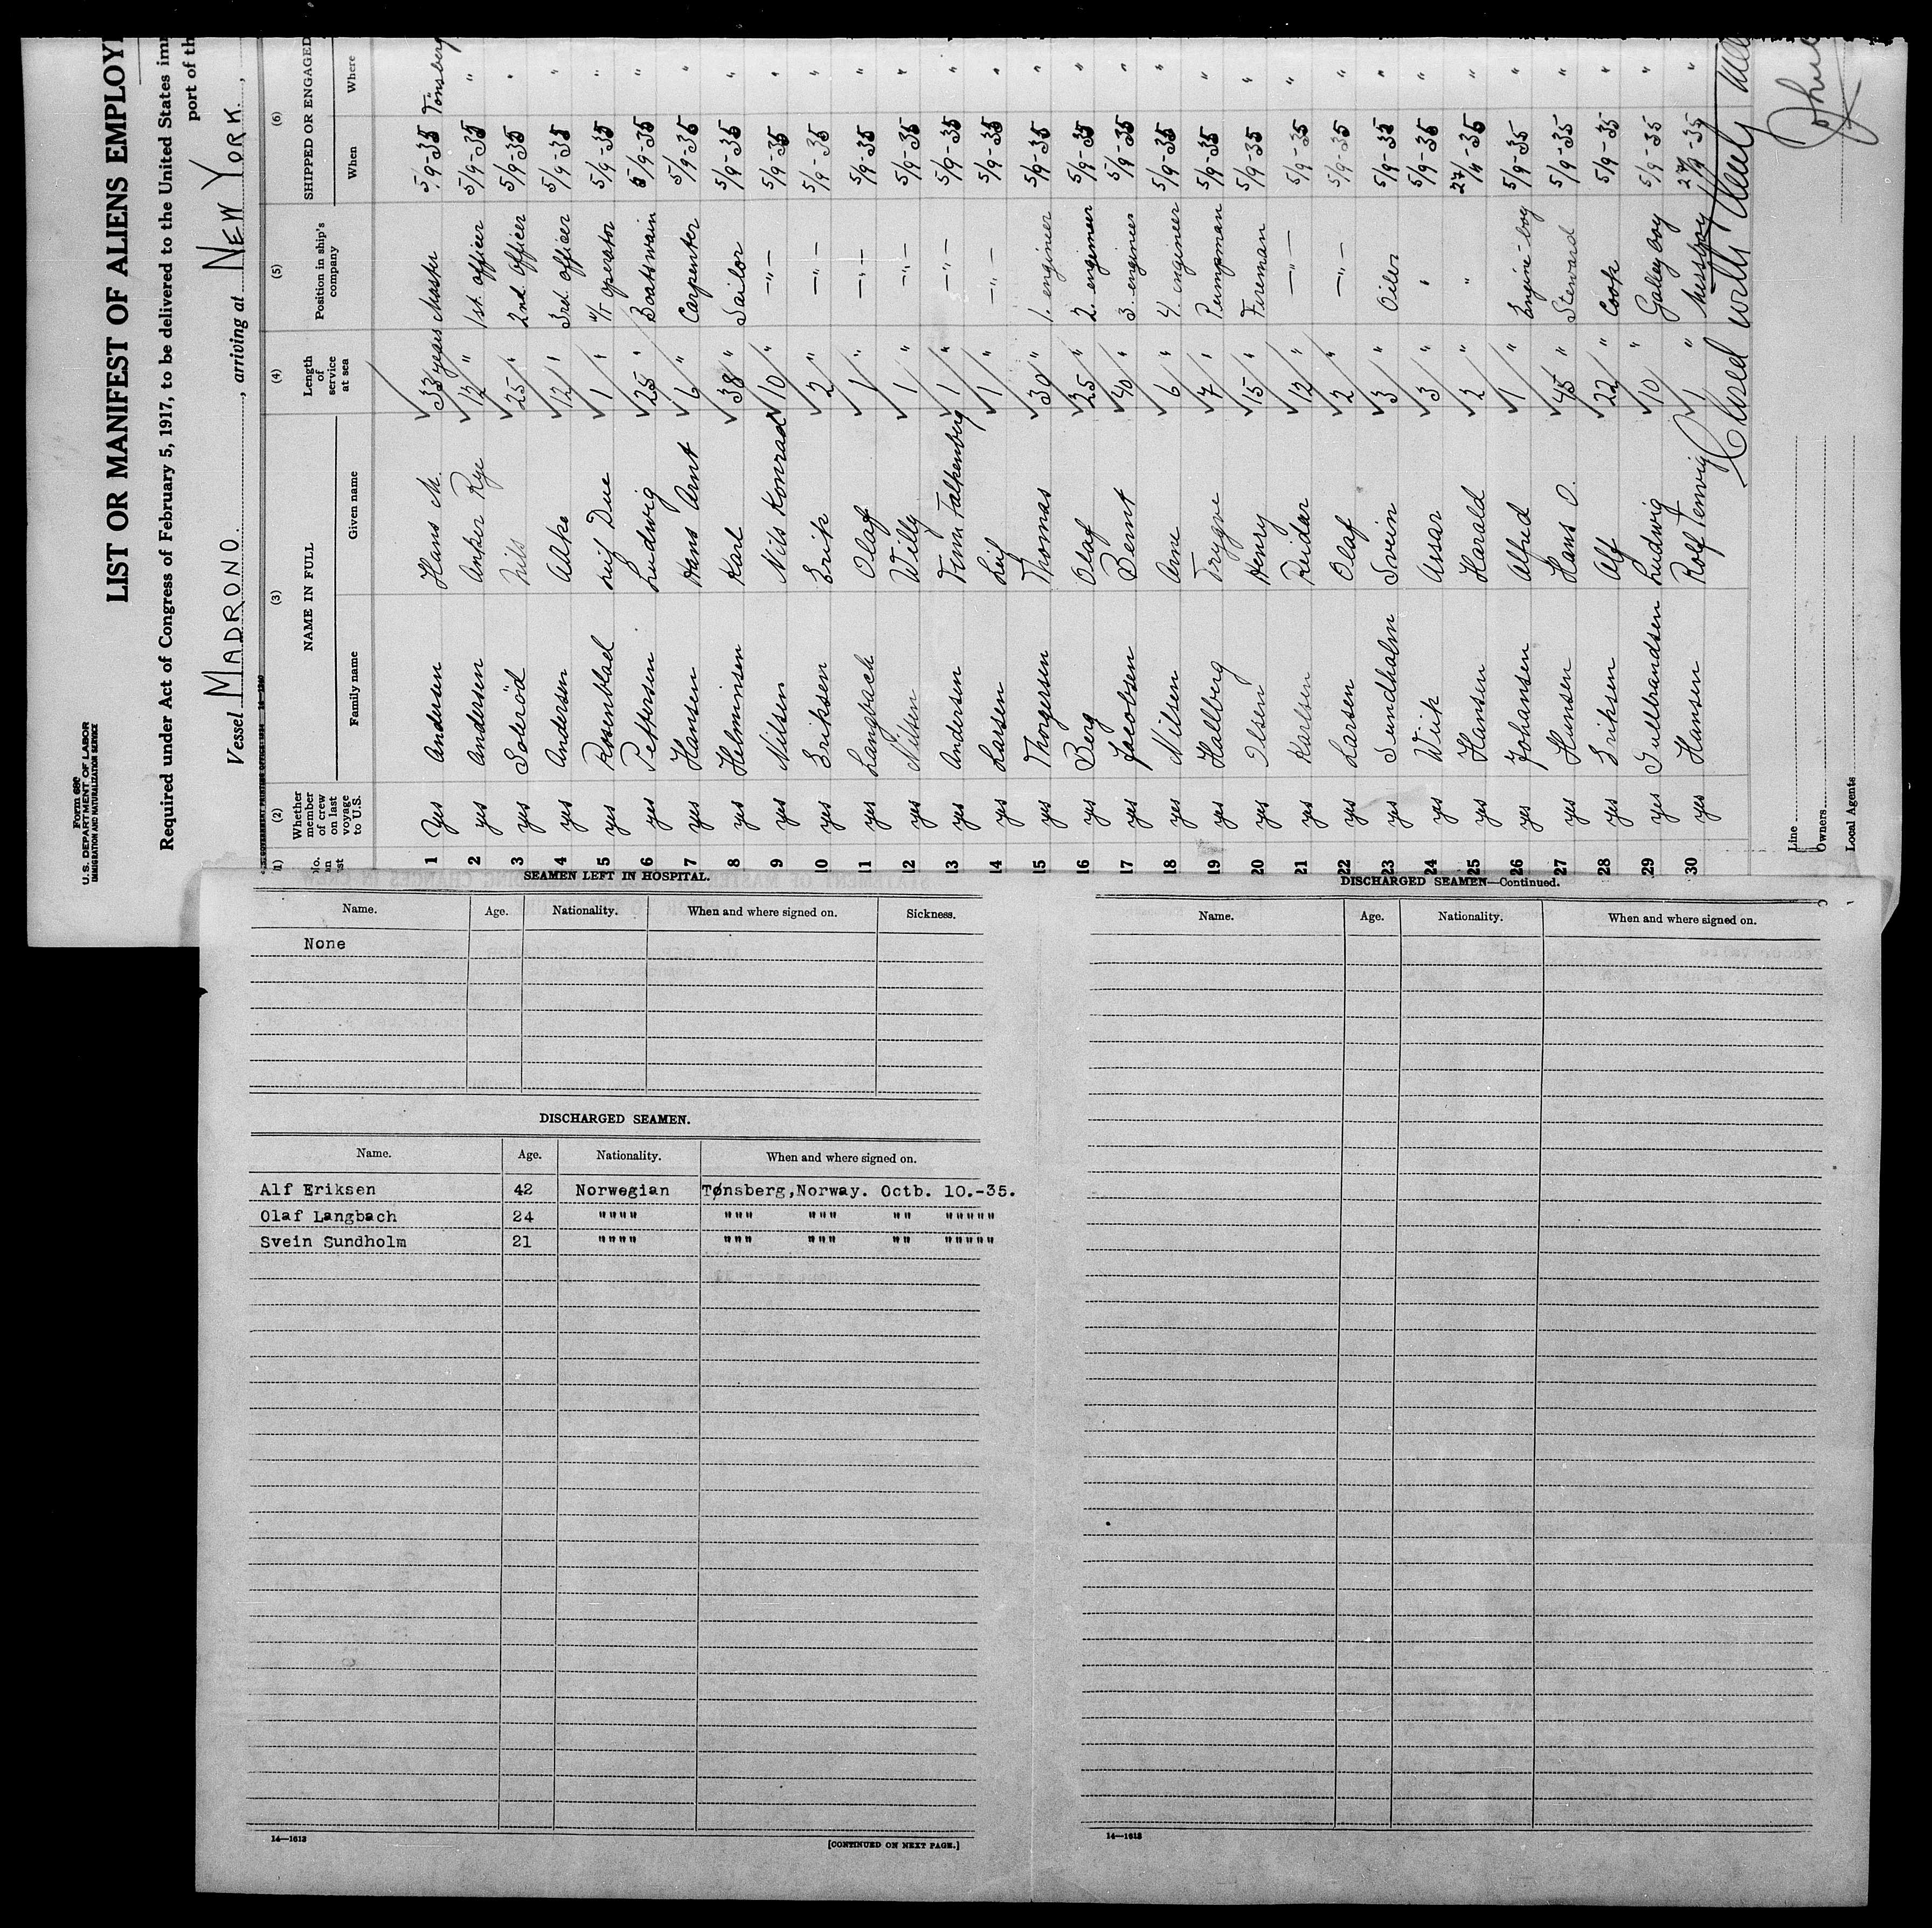 Form 680
U.S. DEPARTMENT OF LABOR
IMMIGRATION AND NATURALIZATION SERVICE
LIST OR MANIFEST OF ALIENS EMPLOY
Required under Act of Congress of February 5, 1917, to be delivered to the United States imm
port of th
Vessel MADRONO., arriving at NEW YORK.,
(1) (2) (3) (4) (5) (6)
No. Whether member of crew on last voyage to U.S. NAME IN FULL Length of service at sea Position in ship's company SHIPPED OR ENGAGED
Family name Given name When Where
1 Yes Andersen Hans M. 33 years Master 5/9-35 Tönsberg
2 yes Andersen Anker Rye 12 " 1st. officer 5/9-35 "
3 yes Soleröd Nils 25 " 2nd. officer 5/9-35 "
4 yes Andersen 12 " 3rd. officer 5/9-35 "
5 yes Rosenblad Leif Due 1 " W/T operator 5/9-35 "
6 yes Pettersen Ludwig 25 " Boatswain 5/9-35 "
7 yes Hansen Hans Arnt 6 " Carpenter 5/9-35 "
8 yes Helminsen Karl 38 " Sailor 5/9-35 "
9 yes Nilsen Nils Konrad 10 " —"— 5/9-35 "
10 yes Eriksen Erik 2 " —"— 5/9-35 "
11 yes Langbach Olaf 1 " —"— 5/9-35 "
12 yes Nilsen Willy 1 " —"— 5/9-35 "
13 yes Andersen Finn Falkenberg 1 " —"— 5/9-35 "
14 yes Larsen Leif 1 " —"— 5/9-35 "
15 yes Thorgersen Thomas 30 " 1. engineer 5/9-35 "
16 yes Berg Olaf 25 " 2. engineer 5/9-35 "
17 yes Jacobsen Bernt 40 " 3. engineer 5/9-35 "
18 yes Nilsen Arne 6 " 4. engineer 5/9-35 "
19 yes Hallberg Trygve 7 " Pumpman 5/9-35 "
20 yes Olsen Henry 15 " Fireman 5/9-35 "
21 yes Karlsen Reidar 12 " —"— 5/9-35 "
22 yes Larsen Olaf 2 " —"— 5/9-35 "
23 yes Sundholm Svein 3 " Oiler 5/9-35 "
24 yes Wiik Assar 3 " " 5/9-35 "
25 yes Hansen Harald 2 " " 35 "
26 yes Johansen Alfred 1 " Engine-boy 5/9-35 "
27 yes Hansen Hans O. 45 " Steward 5/9-35 "
28 yes Eriksen Alf 22 " Cook 5/9-35 "
29 yes Gulbrandsen Ludwig 10 " Galleyboy 5/9-35 "
30 yes Hansen Rolf 1 " Messboy 35 "
Closed with
Line
Owners
Local Agents
SEAMEN LEFT IN HOSPITAL.
Name. Age. Nationality. When and where signed on. Sickness.
None
DISCHARGED SEAMEN.
Name. Age. Nationality. When and where signed on.
Alf Eriksen 42 Norwegian Tønsberg,Norway. Octb. 10.-35.
Olaf Langbach 24 """" """ """ "" """""
Svein Sundholm 21 """" """ """ "" """""
14—1613 [CONTINUED ON NEXT PAGE.]
DISCHARGED SEAMEN—Continued.
Name. Age. Nationality. When and where signed on.
14—1613